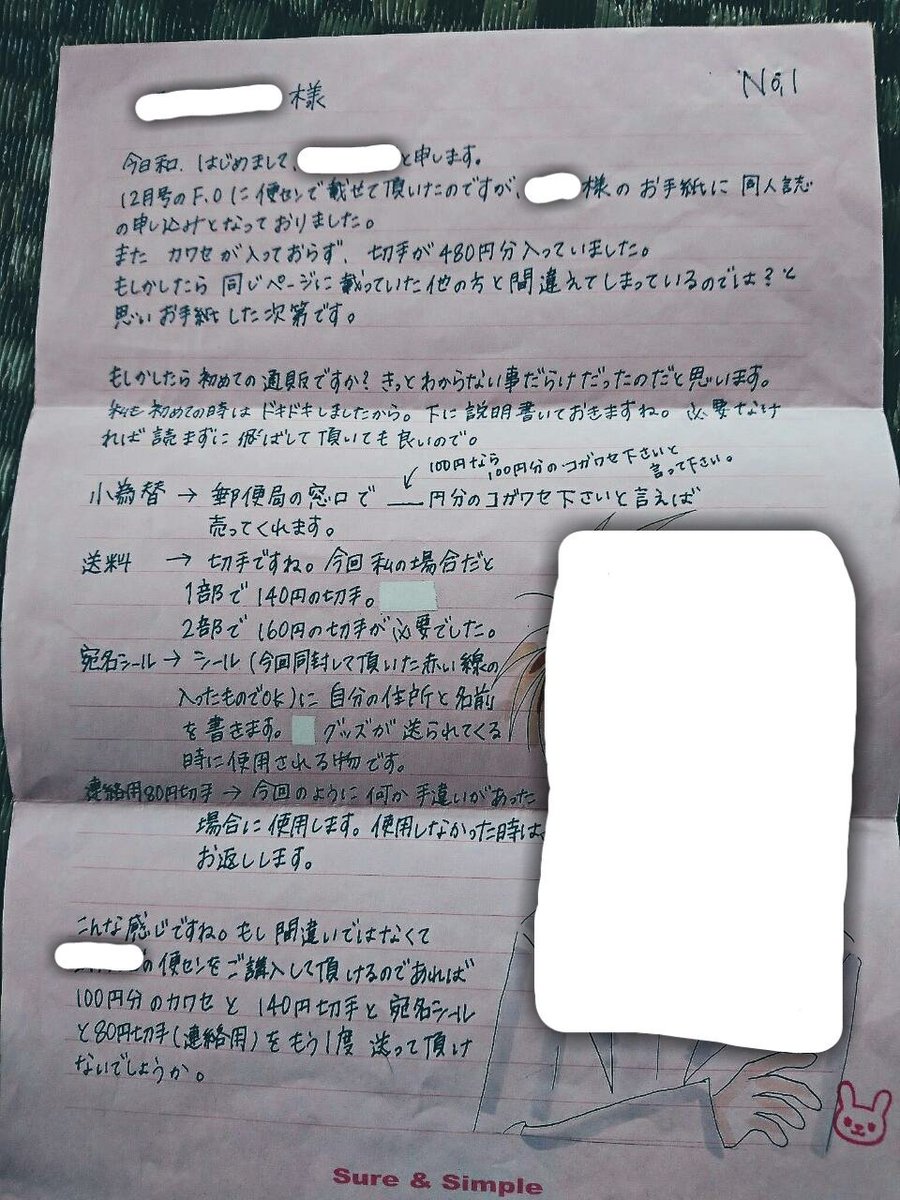 様
No,1
今日和、はじめまして、 と申します。
12月号のF.Oに便センで載せて頂いたのですが、 様のお手紙に同人誌
の申し込みとなっておりました。
また カワセが入っておらず、切手が480円分入っていました。
もしかしたら同じページに載っていた他の方と間違えてしまっているのでは?と
思いお手紙した次第です。
もしかしたら初めての通販ですか?きっとわからない事だらけだったのだと思います。
私も初めての時はドキドキしましたから。下に説明書いておきますね。必要なけ
れば読まずに飛ばして頂いても良いので。
100円なら
100円分のコガワセ下さいと
言って下さい。
小為替→郵便局の窓口で __円分のコガワセ下さいと言えば
売ってくれます。
送料 →切手ですね。今回私の場合だと
1部で140円の切手。
2部で160円の切手が必要でした。
宛名シール→シール(今回同封して頂いた赤い線の
入ったものでOk)に自分の住所と名前
を書きます。 グッズが送られてくる
時に使用される物です。
連絡用80円切手→今回のように何か手違いがあった
場合に使用します。使用しなかった時は、
お返しします。
こんな感じですね。もし間違いではなくて
の便センをご購入して頂けるのであれば
100円分のカワセと140円切手と宛名シール
と80円切手(連絡用)をもう1度送って頂け
ないでしょうか。
Sure & Simple